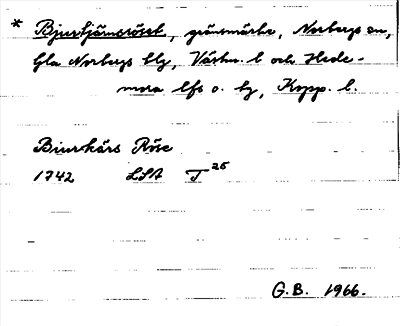 * Bjurtjärnsröset, gränsmärke, Norbergs sn,
Gla Norbergs blg, Västm. l och Hede-
mora lfs o. tg, Kopp. l.
Biurkärs Röse
1742 LSA T 25
G.B. 1966.